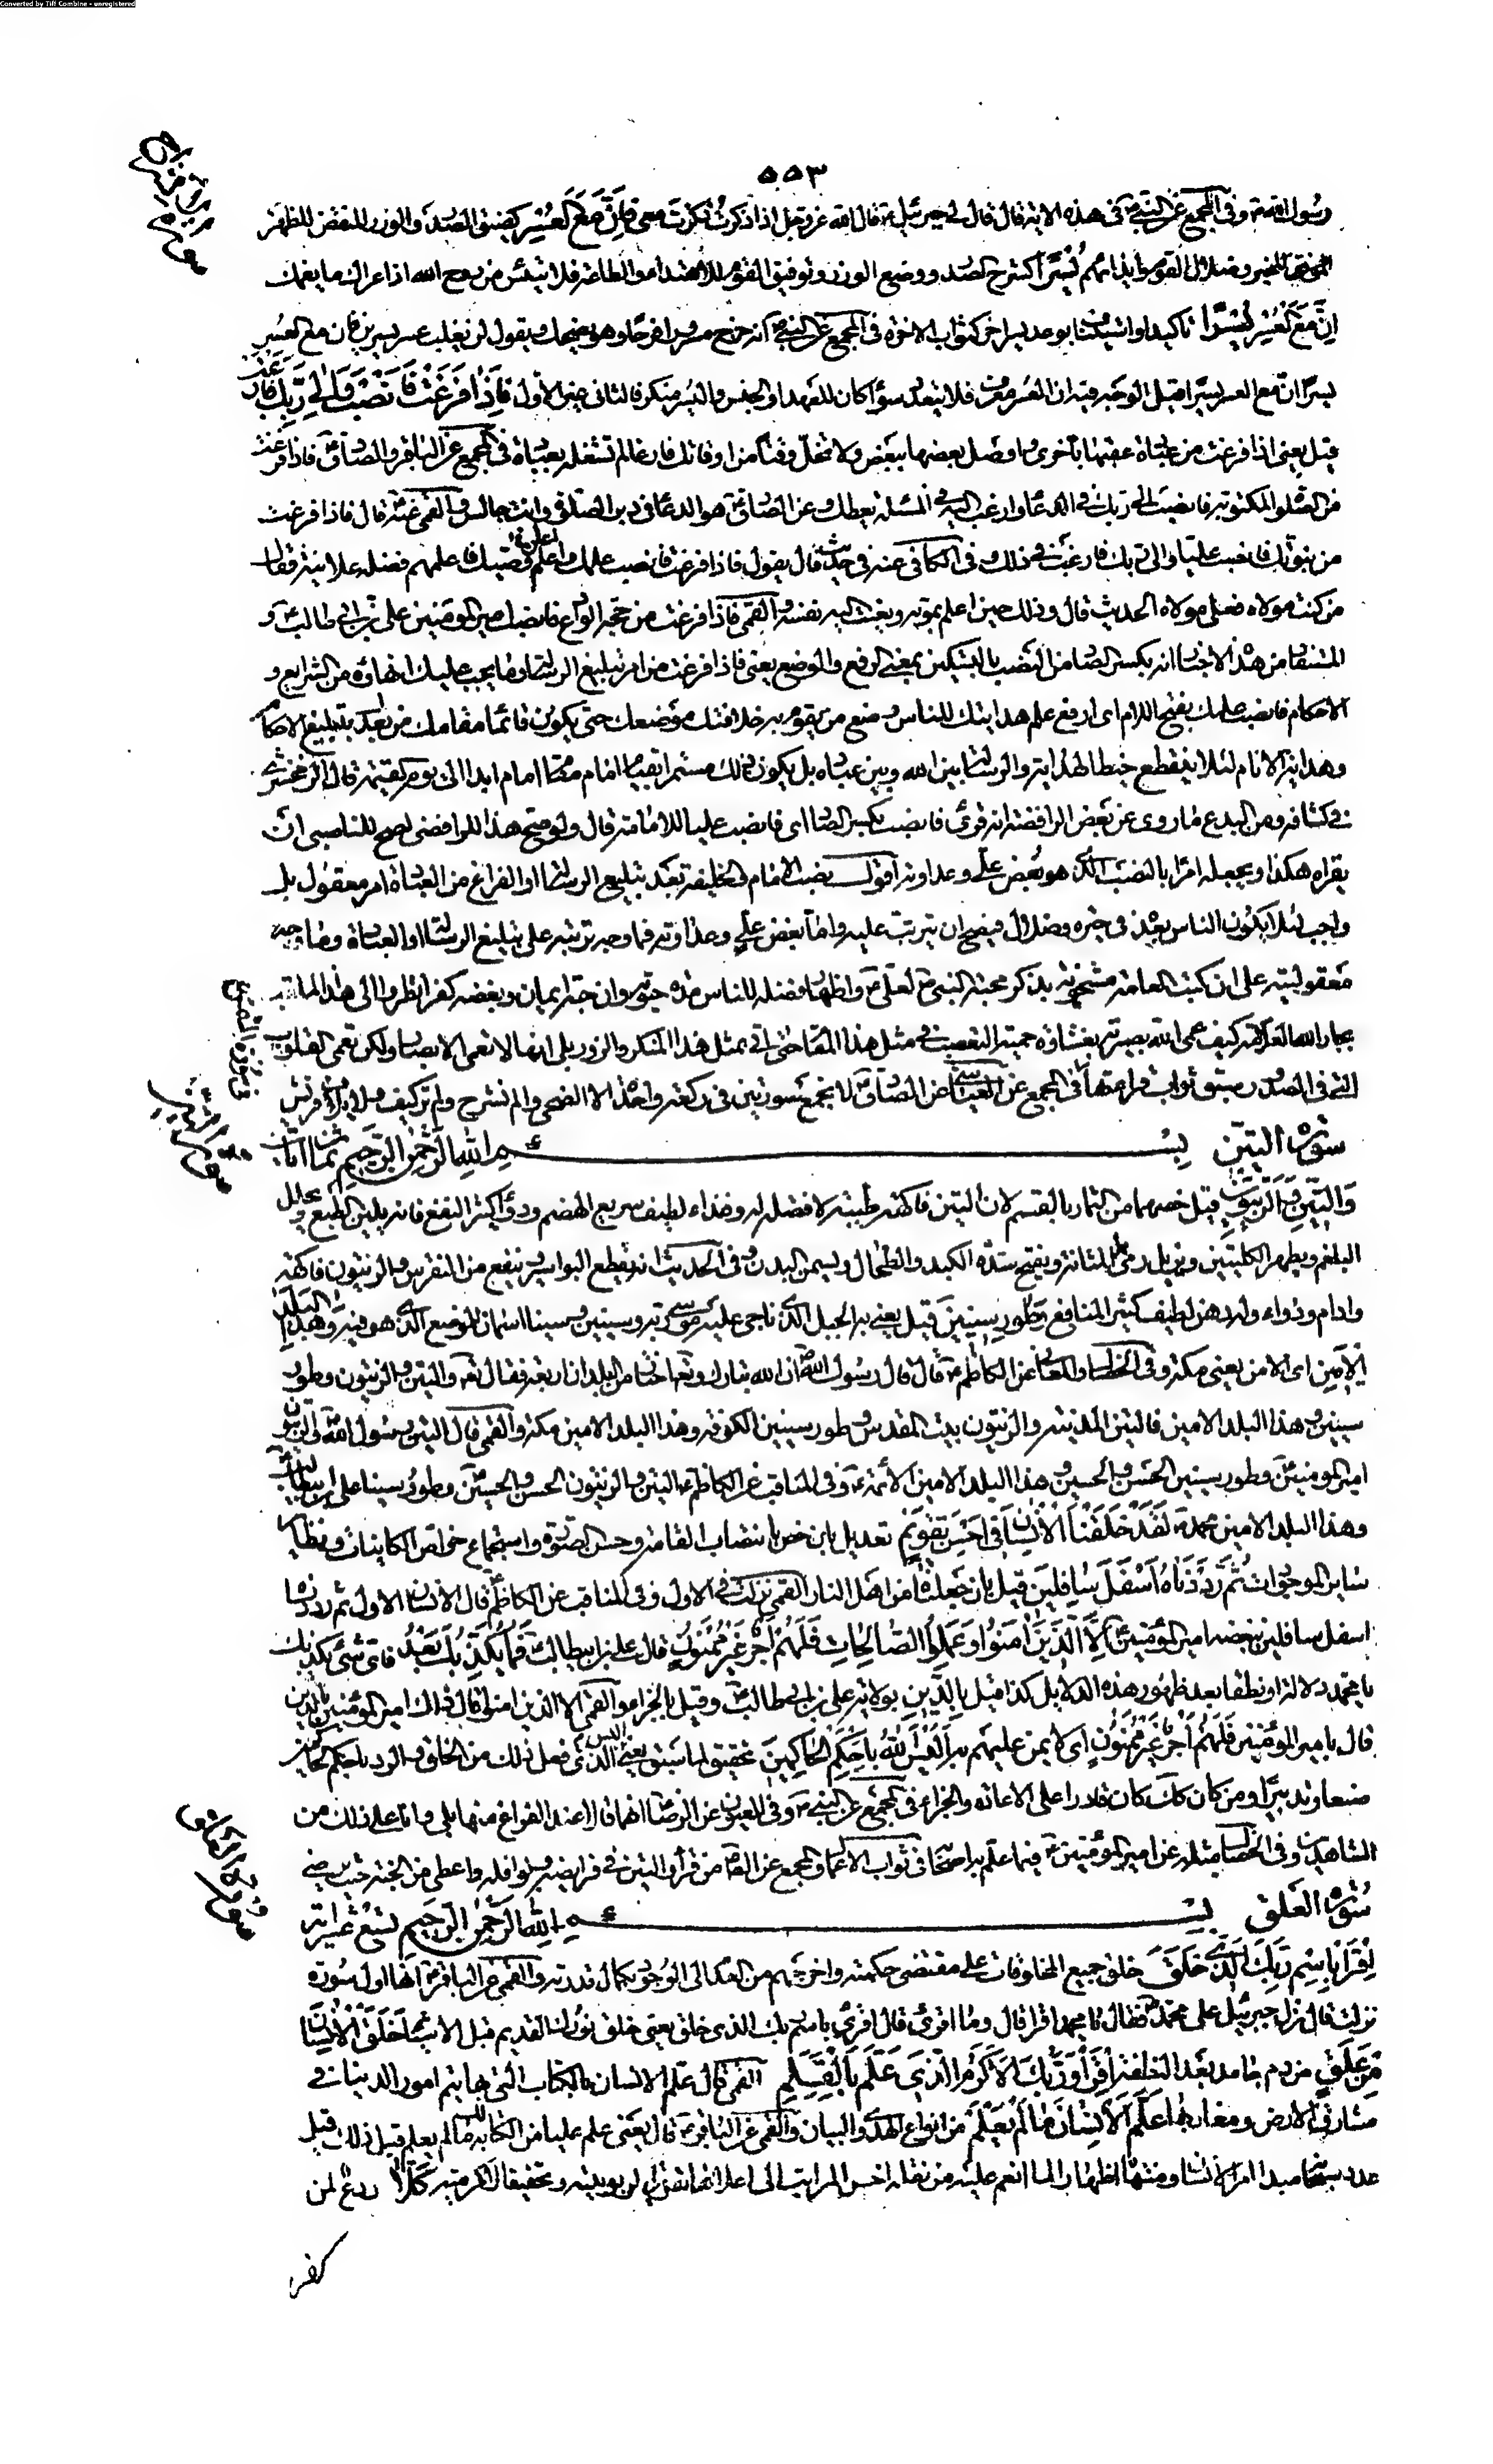 Converted by Tiff Combine - unregistered
٥٥٣
رسول الله ص وفى المجمع عن النبي ص فى هذه الاية قال قال لى جبرئيل ع قال الله عز وجل اذا ذكرتُ ذُكرتَ معى فَاِنَّ مَعَ العُسْرِ كضيق الصدر والوزر المنقض للظهر
وضلال القوم وايذائهم يُسْرًا كشرح الصدر ووضع الوزر وتوفيق القوم للاهتداء والطاعة فلا تيئس من روح الله اذا عراك ما يغمك
اِنَّ مَعَ العُسْرِ يُسْرًا تاكيد او استيناف بوعد يسر اخر كثواب الاخرة فى المجمع عن النبي ص انه خرج مسرورا فرحا وهو يضحك ويقول لن يغلب عسر يسرين فان مع العسر
يسرا ان مع العسر يسرا قيل الوجه فيه ان العسر معرف فلا يتعدد سواء كان للعهد او الجنس واليسر منكر فالثانى غير الاول فَاِذَا فَرَغْتَ فَانْصَبْ وَاِلى رَبِّكَ فَارْغَبْ
قيل يعنى اذا فرغت من عبادة عقبها باخرى واوصل بعضها ببعض ولا تخل وقتا من اوقاتك فارغا لم تشغله بعبادة وفى المجمع عن الباقر والصادق ع فاذا فرغت
من الصلوة المكتوبة فانصب الى ربك فى الدعاء وارغب اليه فى المسئلة يعطك وعن الصادق ع هو الدعاء فى دبر الصلوة وانت جالس والقمى عنه قال فاذا فرغت
من نبوتك فانصب عليا والى ربك فارغب فى ذلك وفى الكافى عنه فى حديث قال يقول فاذا فرغت فانصب علمك واعلن وصيك فاعلمهم فضله علانية فقال
من كنت مولاه فعلى مولاه الحديث قال وذلك حين اعلم بموته ونعيت اليه نفسه والقمى فاذا فرغت من حجة الوداع فانصب امير المؤمنين على بن ابى طالب ع و
المستفاد من هذه الاخبار انه بكسر الصاد من النصب بالتسكين بمعنى الرفع والوضع يعنى فاذا فرغت من امر تبليغ الرسالة وما يجب عليك انهاؤه من الشرايع و
الاحكام فانصب علمك بفتح اللام اى ارفع علم هدايتك للناس وضع من يقوم به خلافتك موضعك حتى يكون قائما مقامك من بعدك بتبليغ الاحكام
وهداية الانام لئلا ينقطع خيط الهداية والرسالة بين الله وبين عباده بل يكون ذلك مستمرا بقيام امام مقام امام ابدا الى يوم القيمة قال الزمخشرى
فى كشافه ومن البدع ما روى عن بعض الرافضة انه قرئ فانصب بكسر الصاد اى فانصب عليا للامامة قال ولو صح هذا للرافضى لصح للناصبى ان
يقرأه هكذا ويجعله امرا بالنصب الذى هو بغض على وعداوته اقول نصب الامام والخليفة بعد تبليغ الرسالة او الفراغ من العبادة امر معقول بل
واجب لئلا يكون الناس بعده فى حيرة وضلال فيصح ان يترتب عليه واما بغض على وعداوته فما وجه ترتبه على تبليغ الرسالة او العبادة وما وجه
معقوليته على ان كتب العامة مشحونة بذكر محبة النبي ص لعلى ع واظهاره فضله للناس مدة حيوته وان حبه ايمان وبغضه كفر انظروا الى هذا الملقب
بجار الله العلامة كيف عمى الله بصيرته بغشاوة حمية التعصب فى مثل هذا المقام حتى اتى بمثل هذا المنكر والزور بلى انها لا تعمى الابصار ولكن تعمى القلوب
التى فى الصدور سبق ثواب قرائتها فى المجمع عن العياشى عن الصادق ع لا تجمع سورتين فى ركعة واحدة الا الضحى والم نشرح والم تر كيف ولايلاف قريش
سورة التين بسم الله الرحمن الرحيم ثمان ايات
وَالتِّينِ وَالزَّيْتُونِ قيل خصهما من الثمار بالقسم لان التين فاكهة طيبة لا فضل له وغذاء لطيف سريع الهضم ودواء كثير النفع فانه يلين الطبع ويحلل
البلغم ويطهر الكليتين ويزيل رمل المثانة ويفتح سدة الكبد والطحال ويسمن البدن وفى الحديث انه يقطع البواسير وينفع من النقرس والزيتون فاكهة
وادام ودواء وله دهن لطيف كثير المنافع وَطُورِ سِينِينَ قيل يعنى به الجبل الذى ناجى عليه موسى ربه وسينين وسيناء اسمان للموضع الذى هو فيه وَهذَا الْبَلَدِ
الْاَمِينِ اى الامن يعنى مكة وفى الخصال والمعانى عن الكاظم ع قال قال رسول الله ص ان الله تبارك وتعالى اختار من البلدان اربعة فقال تعالى والتين والزيتون وطور
سينين وهذا البلد الامين فالتين المدينة والزيتون بيت المقدس وطور سينين الكوفة وهذا البلد الامين مكة والقمى قال التين رسول الله ص والزيتون
امير المؤمنين ع وطور سينين الحسن والحسين وهذا البلد الامين الائمة ع وفى المناقب عن الكاظم ع التين والزيتون الحسن والحسين ع وطور سينا على بن ابيطالب ع
وهذا البلد الامين محمد ص لَقَدْ خَلَقْنَا الْاِنْسَانَ فِى اَحْسَنِ تَقْوِيمٍ تعديل بان خص بانتصاب القامة وحسن الصورة واستجماع خواص الكاينات ونظاير
ساير الموجودات ثُمَّ رَدَدْنَاهُ اَسْفَلَ سَافِلِينَ قيل بان جعلناه من اهل النار القمى نزلت فى الاول وفى المناقب عن الكاظم ع قال الانسان الاول ثم رددناه
اسفل سافلين ببغضه امير المؤمنين ع اِلَّا الَّذِينَ امَنُوا وَعَمِلُوا الصَّالِحَاتِ فَلَهُمْ اَجْرٌ غَيْرُ مَمْنُونٍ قال على بن ابيطالب ع فَمَا يُكَذِّبُكَ بَعْدُ فاى شئ يكذبك
يا محمد دلالة او نطقا بعد ظهور هذه الدلائل كذا قيل بِالدِّينِ بولاية على بن ابى طالب ع وقيل بالجزاء والقمى الا الذين امنوا قال ذلك امير المؤمنين بالدين
قال بامير المؤمنين فَلَهُمْ اَجْرٌ غَيْرُ مَمْنُونٍ اى لا يمن عليهم به اَلَيْسَ اللهُ بِاَحْكَمِ الْحَاكِمِينَ تحقيق لما سبق يعنى اليس الذى فعل ذلك من الخلق والرد باحكم الحاكمين
صنعا وتدبيرا ومن كان كك كان قادرا على الاعادة والجزاء فى المجمع عن النبي ص وفى العيون عن الرضا ع انهما قالا عند الفراغ منها بلى وانا على ذلك من
الشاهدين وفى الخصال مثله عن امير المؤمنين ع فيما علم به اصحابه فى ثواب الاعمال والمجمع عن الصادق ع من قرأ والتين فى فرايضه ونوافله اعطى من الجنة حيث يرضى
سورة العلق بسم الله الرحمن الرحيم تسع عشر اية
اِقْرَأْ بِاسْمِ رَبِّكَ الَّذِى خَلَقَ خلق جميع المخلوقات على مقتضى حكمته واخرجهم من العدم الى الوجود بكمال قدرته والقمى عن الباقر ع انها اول سورة
نزلت قال نزل جبرئيل على محمد ص فقال يا محمد اقرأ قال وما اقرئ قال اقرئ باسم ربك الذى خلق يعنى خلق نورك القديم قبل الاشياء خَلَقَ الْاِنْسَانَ
مِنْ عَلَقٍ من دم جامد بعد النطفة اِقْرَأْ وَرَبُّكَ الْاَكْرَمُ الَّذِى عَلَّمَ بِالْقَلَمِ القمى قال علم الانسان بالكتابة التى بها يتم امور الدنيا فى
مشارق الارض ومغاربها عَلَّمَ الْاِنْسَانَ مَا لَمْ يَعْلَمْ من انواع الهدى والبيان والقمى عن الباقر ع قال يعنى علم عليا من الكتابة لك ما لم يعلم قبل ذلك قيل
عدد سبحانه مبدا امر الانسان ومنتهاه اظهارا لما انعم عليه من نقله اخس المراتب الى اعلاها تقريرا لربوبيته وتحقيقا لاكرميته كَلَّا ردع لمن
كفر